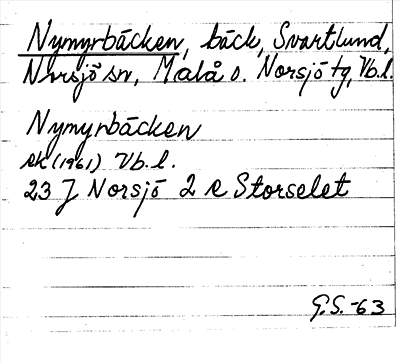 Nymyrbäcken, bäck, Svartlund,
Norsjö sn, Malå o. Norsjö tg, Vb.l.
Nymyrbäcken
ek (1961) Vb.l.
23 J Norsjö 2 e Storselet
G.S.-63